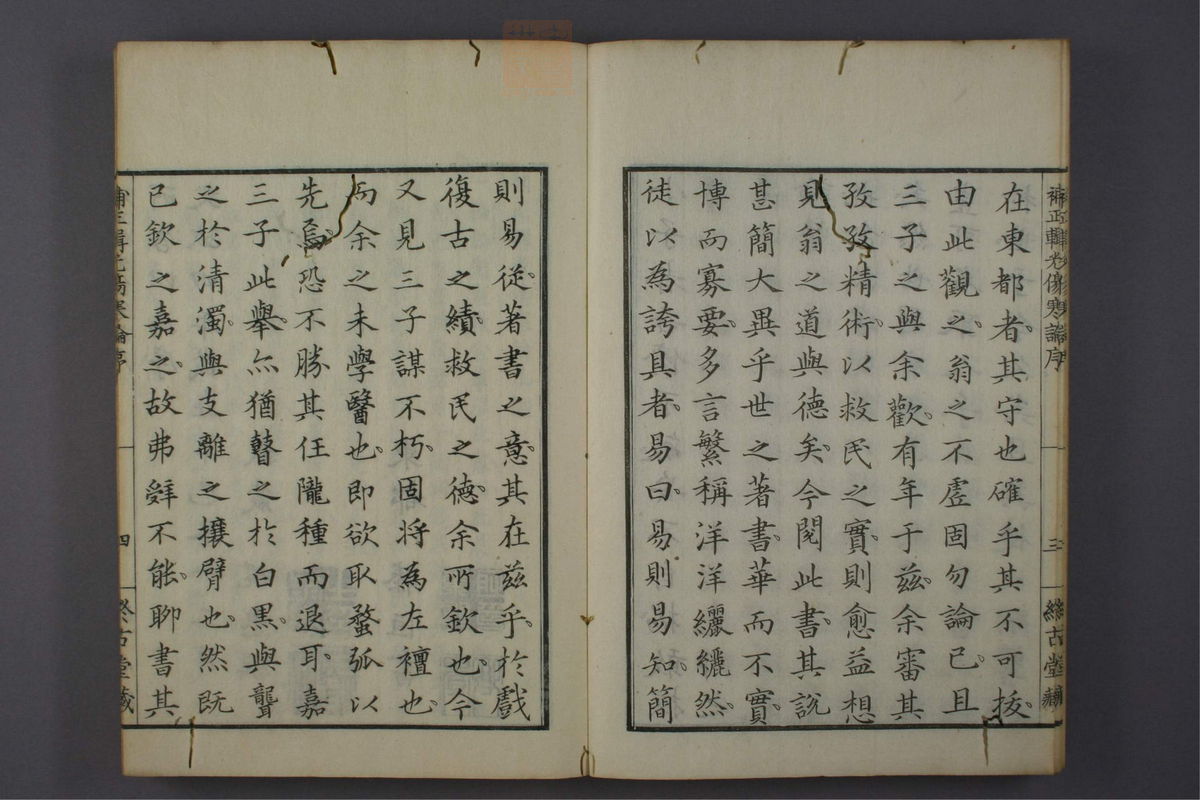 補正輯光傷寒論序
三
終古堂藏
在東都者其守也確乎其不可拔
由此觀之翁之不虛固勿論已且
三子之與余歡有年于茲余審其
孜孜精術以救民之實則愈益想
見翁之道與德矣今閱此書其說
甚簡大異乎世之著書華而不實
博而寡要多言繁稱洋洋纚纚然
徒以為誇具者易曰易則易知簡
則易從著書之意其在茲乎於戲
復古之績救民之德余所欽也今
又見三子謀不朽固將為左袒也
而余之未學醫也即欲取蝥弧以
先焉恐不勝其任隴種而退耳嘉
三子此舉亦猶瞽之於白黑與聾
之於清濁與支離之攘臂也然既
已欽之嘉之故弗辭不能聊書其
補正輯光傷寒論序
四
終古堂藏